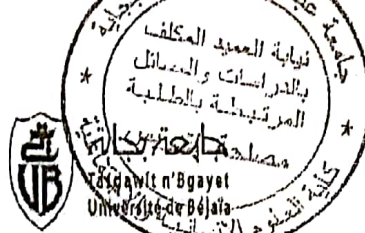 جامعة
نيابة العميد المكلف
بالدراسات والمسائل
المرتبطة بالطلبة
مصلحة
جامعة بجاية
Tasdawit n'Bgayet
Université de Béjaïa
كلية العلوم